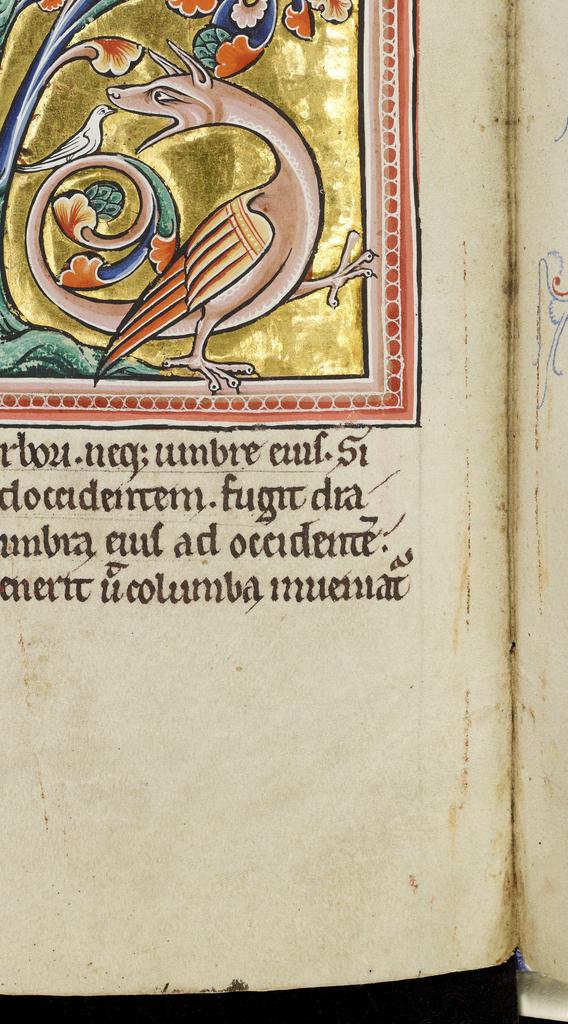 rbori. neq; umbre eius. Si
d occidentem. fugit dra
umbra eius ad occidentē.
enerit ū columba inueniat̄